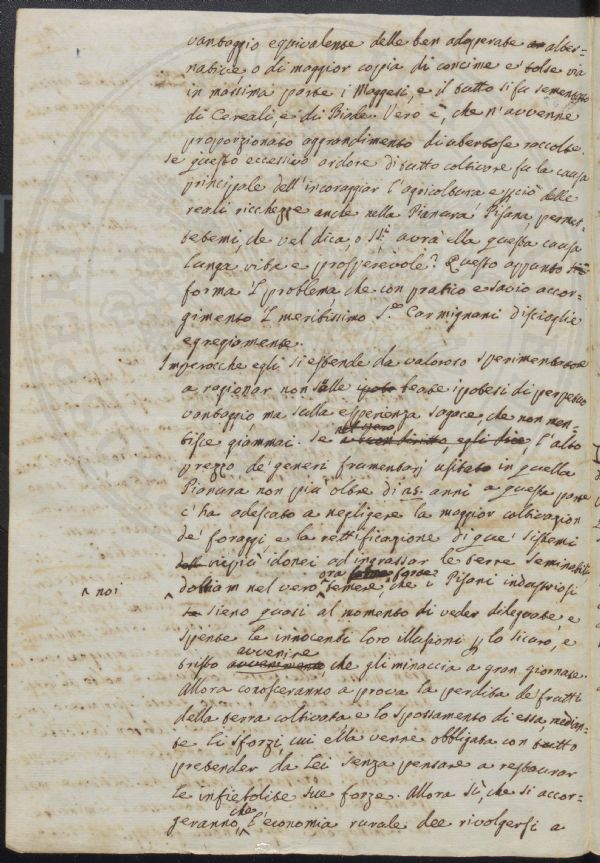 vantaggio equivalente delle ben adoperate alter-
natice o di maggior coppia di concime e tolse via
in massima parte i Maggesi, e il tutto si fù sementato
di Cereali, e di Biade. Vero è, che n'avvenne
proporzionato aggrandimento di ubertose raccolte.
Se questo eccessivo ardore di tutto coltivare fu la causa
principale dell'incoraggiar l'agricoltura e della
reali ricchezze anche nella Pianura Pisana, permet-
tetemi, che vel dica, o SS.ri avrà ella questa causa
lunga vita e prosperevole? Questo appunto
forma il problema, che con pratico e savio accor-
gimento il meritissimo S.r Carmignani discioglie
egregiamente.
Imperocche egli si estende da valoroso sperimentatore
a ragionar non sulle beate ipotesi di perpetuo
vantaggio, ma sulla esperienza sagace, che non men-
tisce giammai. Se nel vero l'alto
prezzo de' generi frumentarj usitato in quella
Pianura non più oltre di 25. anni a questa parte
c'ha adescato a negligere la maggior coltivazion
de' foraggi e la rettificazione di que' sistemi
vie più idonei ad ingrassar le terre seminabili
^ noi
dobbiam nel vero ora forse temere, che i Pisani industriosi
sieno quasi al momento di veder dileguate, e
spente le innocenti loro illusioni p lo sicuro, e
tristo avvenire, che gli minaccia a gran giornate.
Allora conosceranno a prova la perdita de' frutti
della terra coltivata e lo spossamento di essa, median-
te li sforzi, cui ella venne obbligata con tutto
pretender da Lei senza pensare a restaurar
le infievolite sue forze. Allora sì, che si accor-
geranno, che l'economia rurale dee rivolgersi a